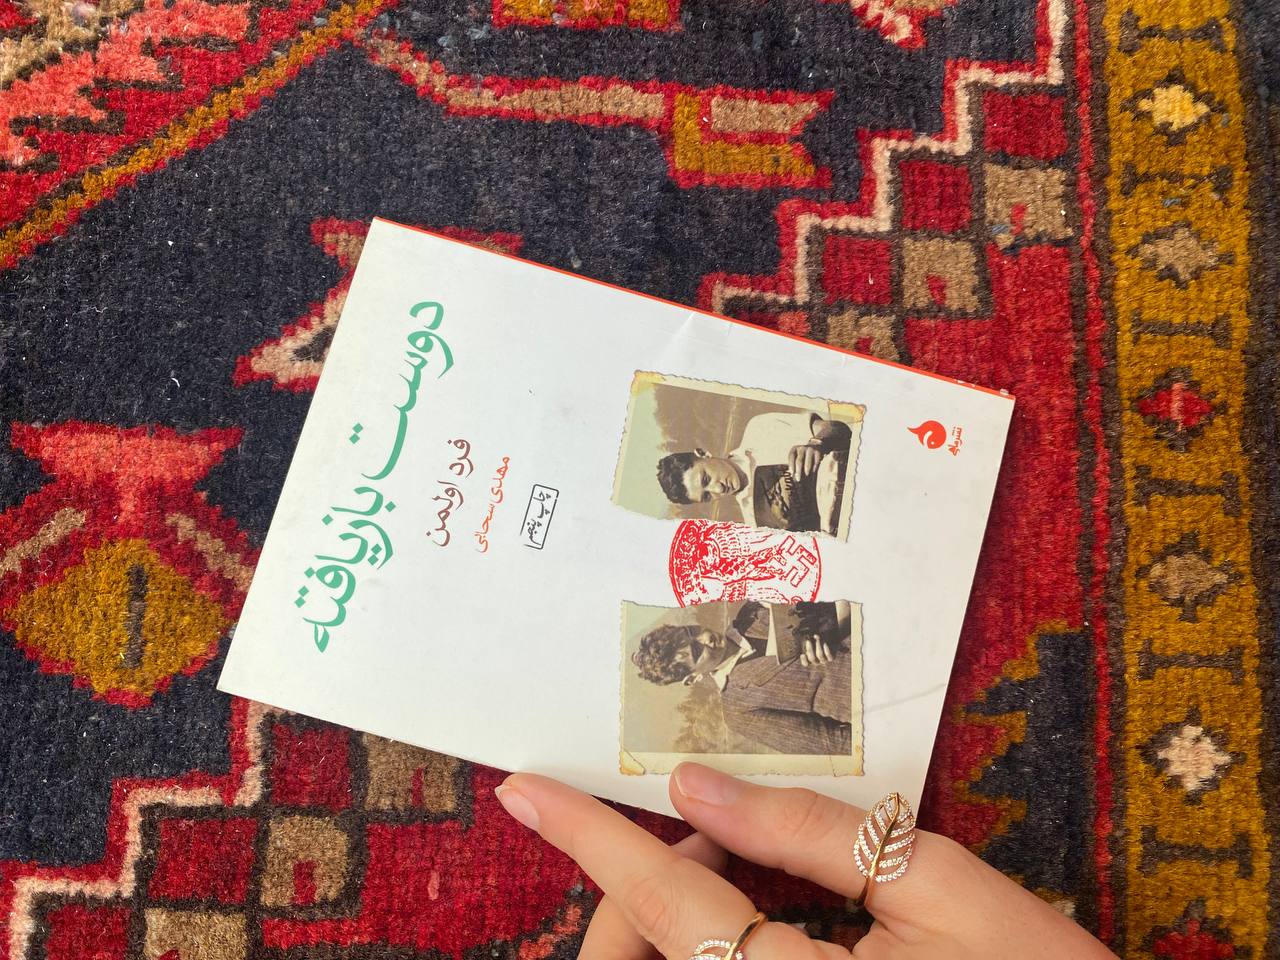 دوست بازیافته
فرد اولمن
مهدی سحابی
چاپ پنجم
نشرماهی